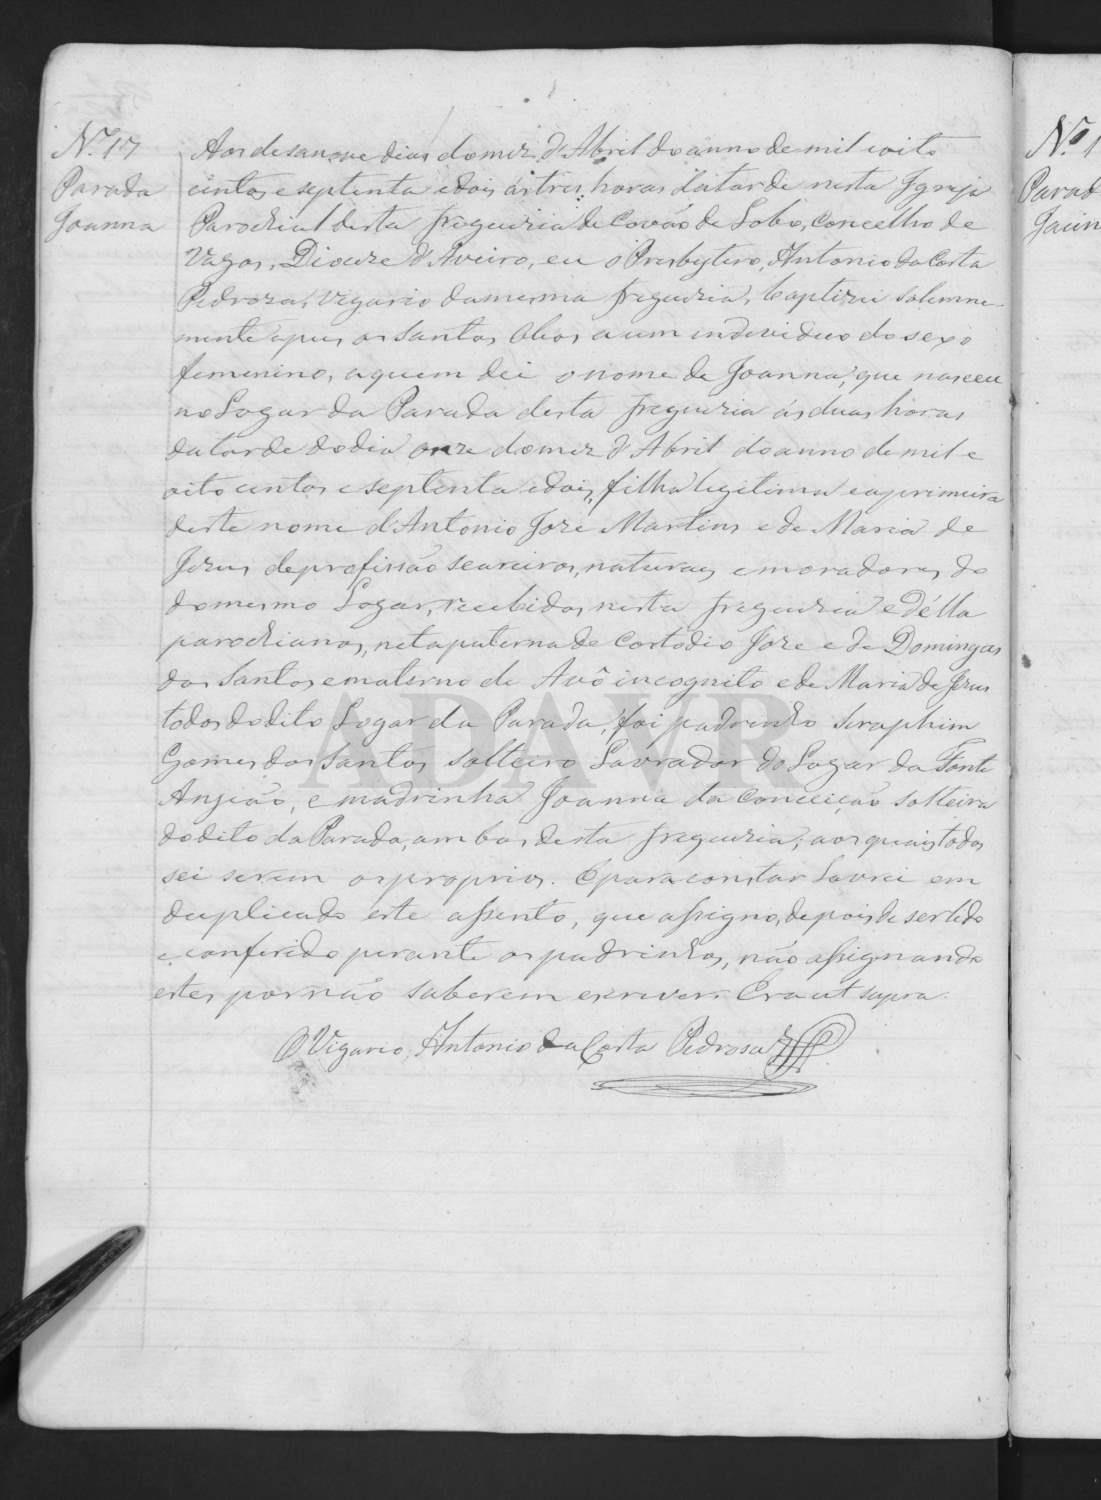 N.º 17
Parada
Joanna
Aos desanove dias do mez d'Abril do anno de mil e oito
centos e septenta e dois ás tres horas da tarde nesta Igreja
Parochial desta freguezia de Covão de Lobo, Concelho de
Vagos, Diocese d'Aveiro, eu o Presbytero, Antonio da Costa
Pedroza, Vigario da mesma freguezia, baptizei solemne-
mente e pus os Santos Oleos a um individuo do sexo
femenino, a quem dei o nome de Joanna, que nasceu
no Logar da Parada desta freguezia ás duas horas
da tarde do dia onze do mez d'Abril do anno de mil e
oito centos e septenta e dois, filha legitima e a primeira
deste nome d'Antonio Joze Martins e de Maria de
Jezus de profissão seareiros, naturaes e moradores do
do mesmo Logar, recebidos nesta freguezia e d'élla
parochianos, neta paterna de Costodio Joze e de Domingas
dos Santos e materno de Avô incognito e de Maria de Jezus
todos do dito Logar da Parada, foi padrinho Seraphim
Gomes dos Santos solteiro Lavrador do Logar da Fonte
Angião, e madrinha Joanna da Conceição solteira
do dito da Parada, ambos desta freguezia, aos quais todos
sei serem os proprios. E para constar Lavrei em
duplicado este assento, que assigno, depois de ser lido
e conferido perante os padrinhos, não assignando
estes por não saberem escrever. Era ut supra.
O Vigario, Antonio da Costa Pedrosa
ADAVR
N.º 1
Parad